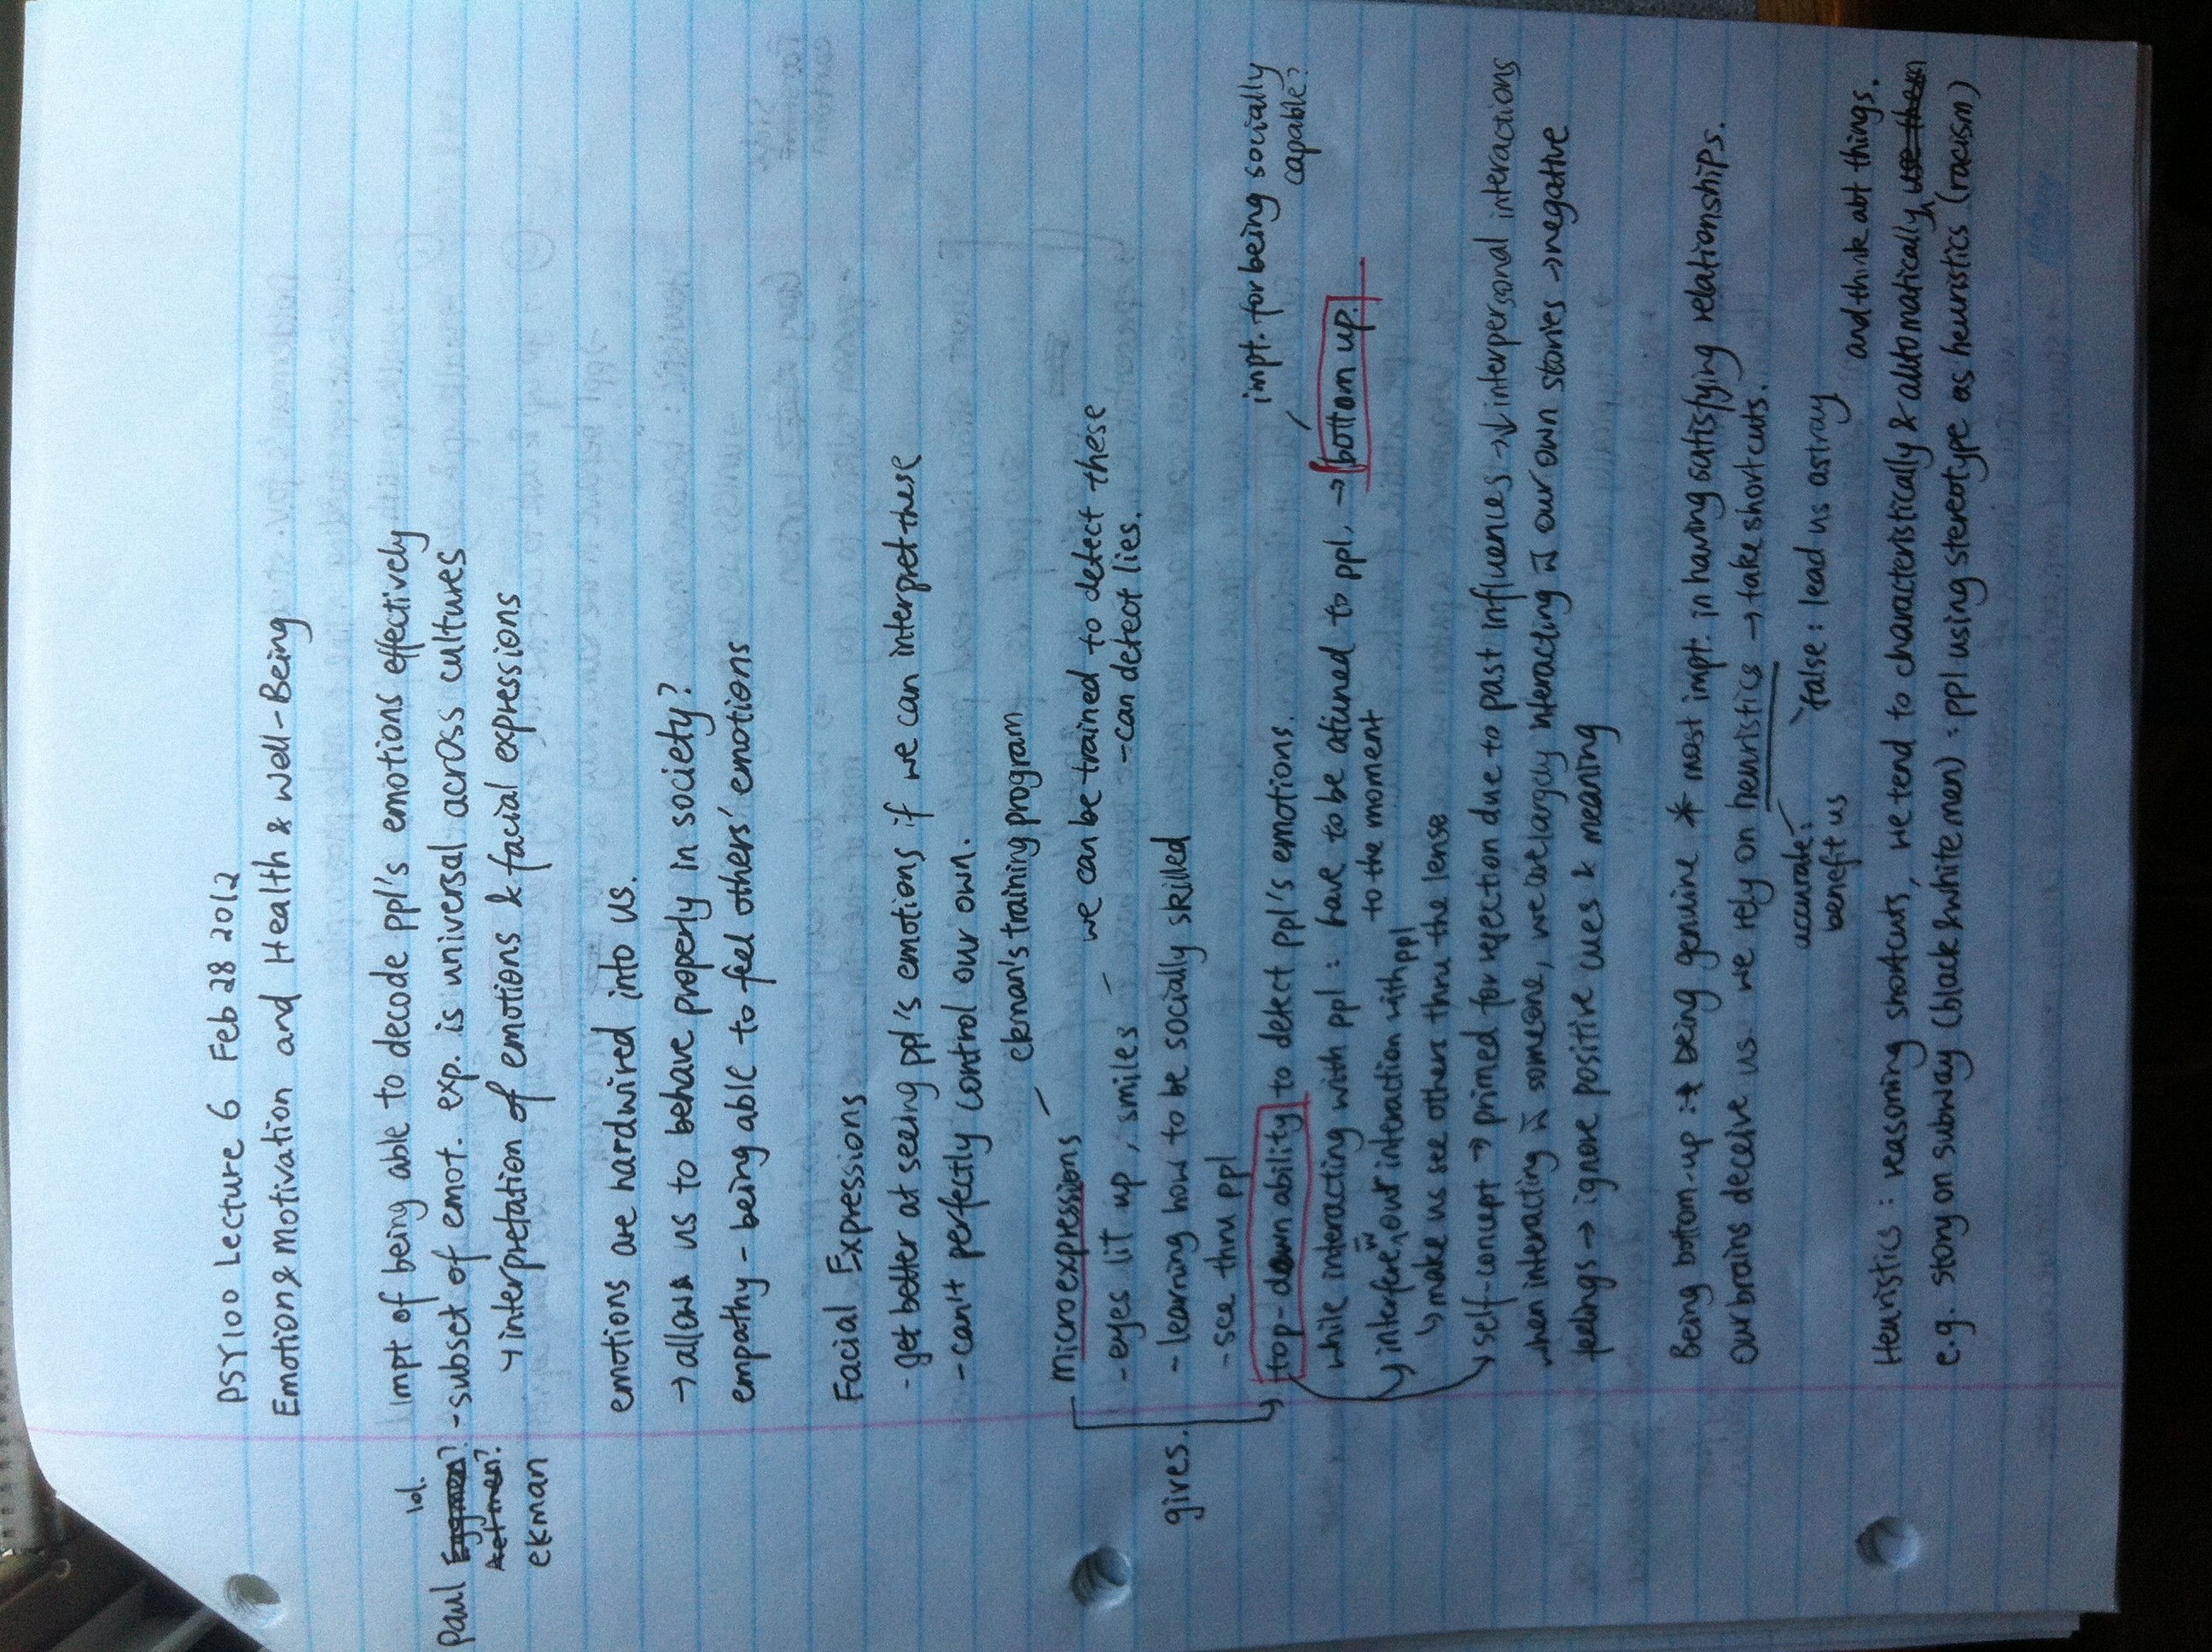 PSY100 Lecture 6 Feb 28 2012
Emotion & Motivation and Health & Well-Being
Id. Impt of being able to decode ppl's emotions effectively
Paul Eggman? - subset of emot. exp. is universal across cultures
Actmen? ↳ interpretation of emotions & facial expressions
ekman
emotions are hardwired into us.
→ allows us to behave properly in society?
empathy - being able to feel others' emotions
Facial Expressions
- get better at seeing ppl's emotions if we can interpret these
- can't perfectly control our own.
ekman's training program
microexpressions
- eyes lit up, smiles - we can be trained to detect these
- can detect lies.
- learning how to be socially skilled
gives. - see thru ppl
impt. for being socially
capable?
top-down ability to detect ppl's emotions.
while interacting with ppl: have to be atuned to ppl. → bottom up.
to the moment
↳ interfere w our interaction with ppl
↳ make us see others thru the lense
↳ self-concept → primed for rejection due to past influences → ↓ interpersonal interactions
when interacting w someone, we are largely interacting w our own stories → negative
feelings → ignore positive cues & meaning
Being bottom-up :→ being genuine * most impt. in having satisfying relationships.
Our brains deceive us. we rely on heuristics → take shortcuts.
accurate: false: lead us astray
benefit us
and think abt things.
Heuristics: reasoning shortcuts, we tend to characteristically & automatically use them
e.g. story on subway (black & white men): ppl using stereotype as heuristics (racism)